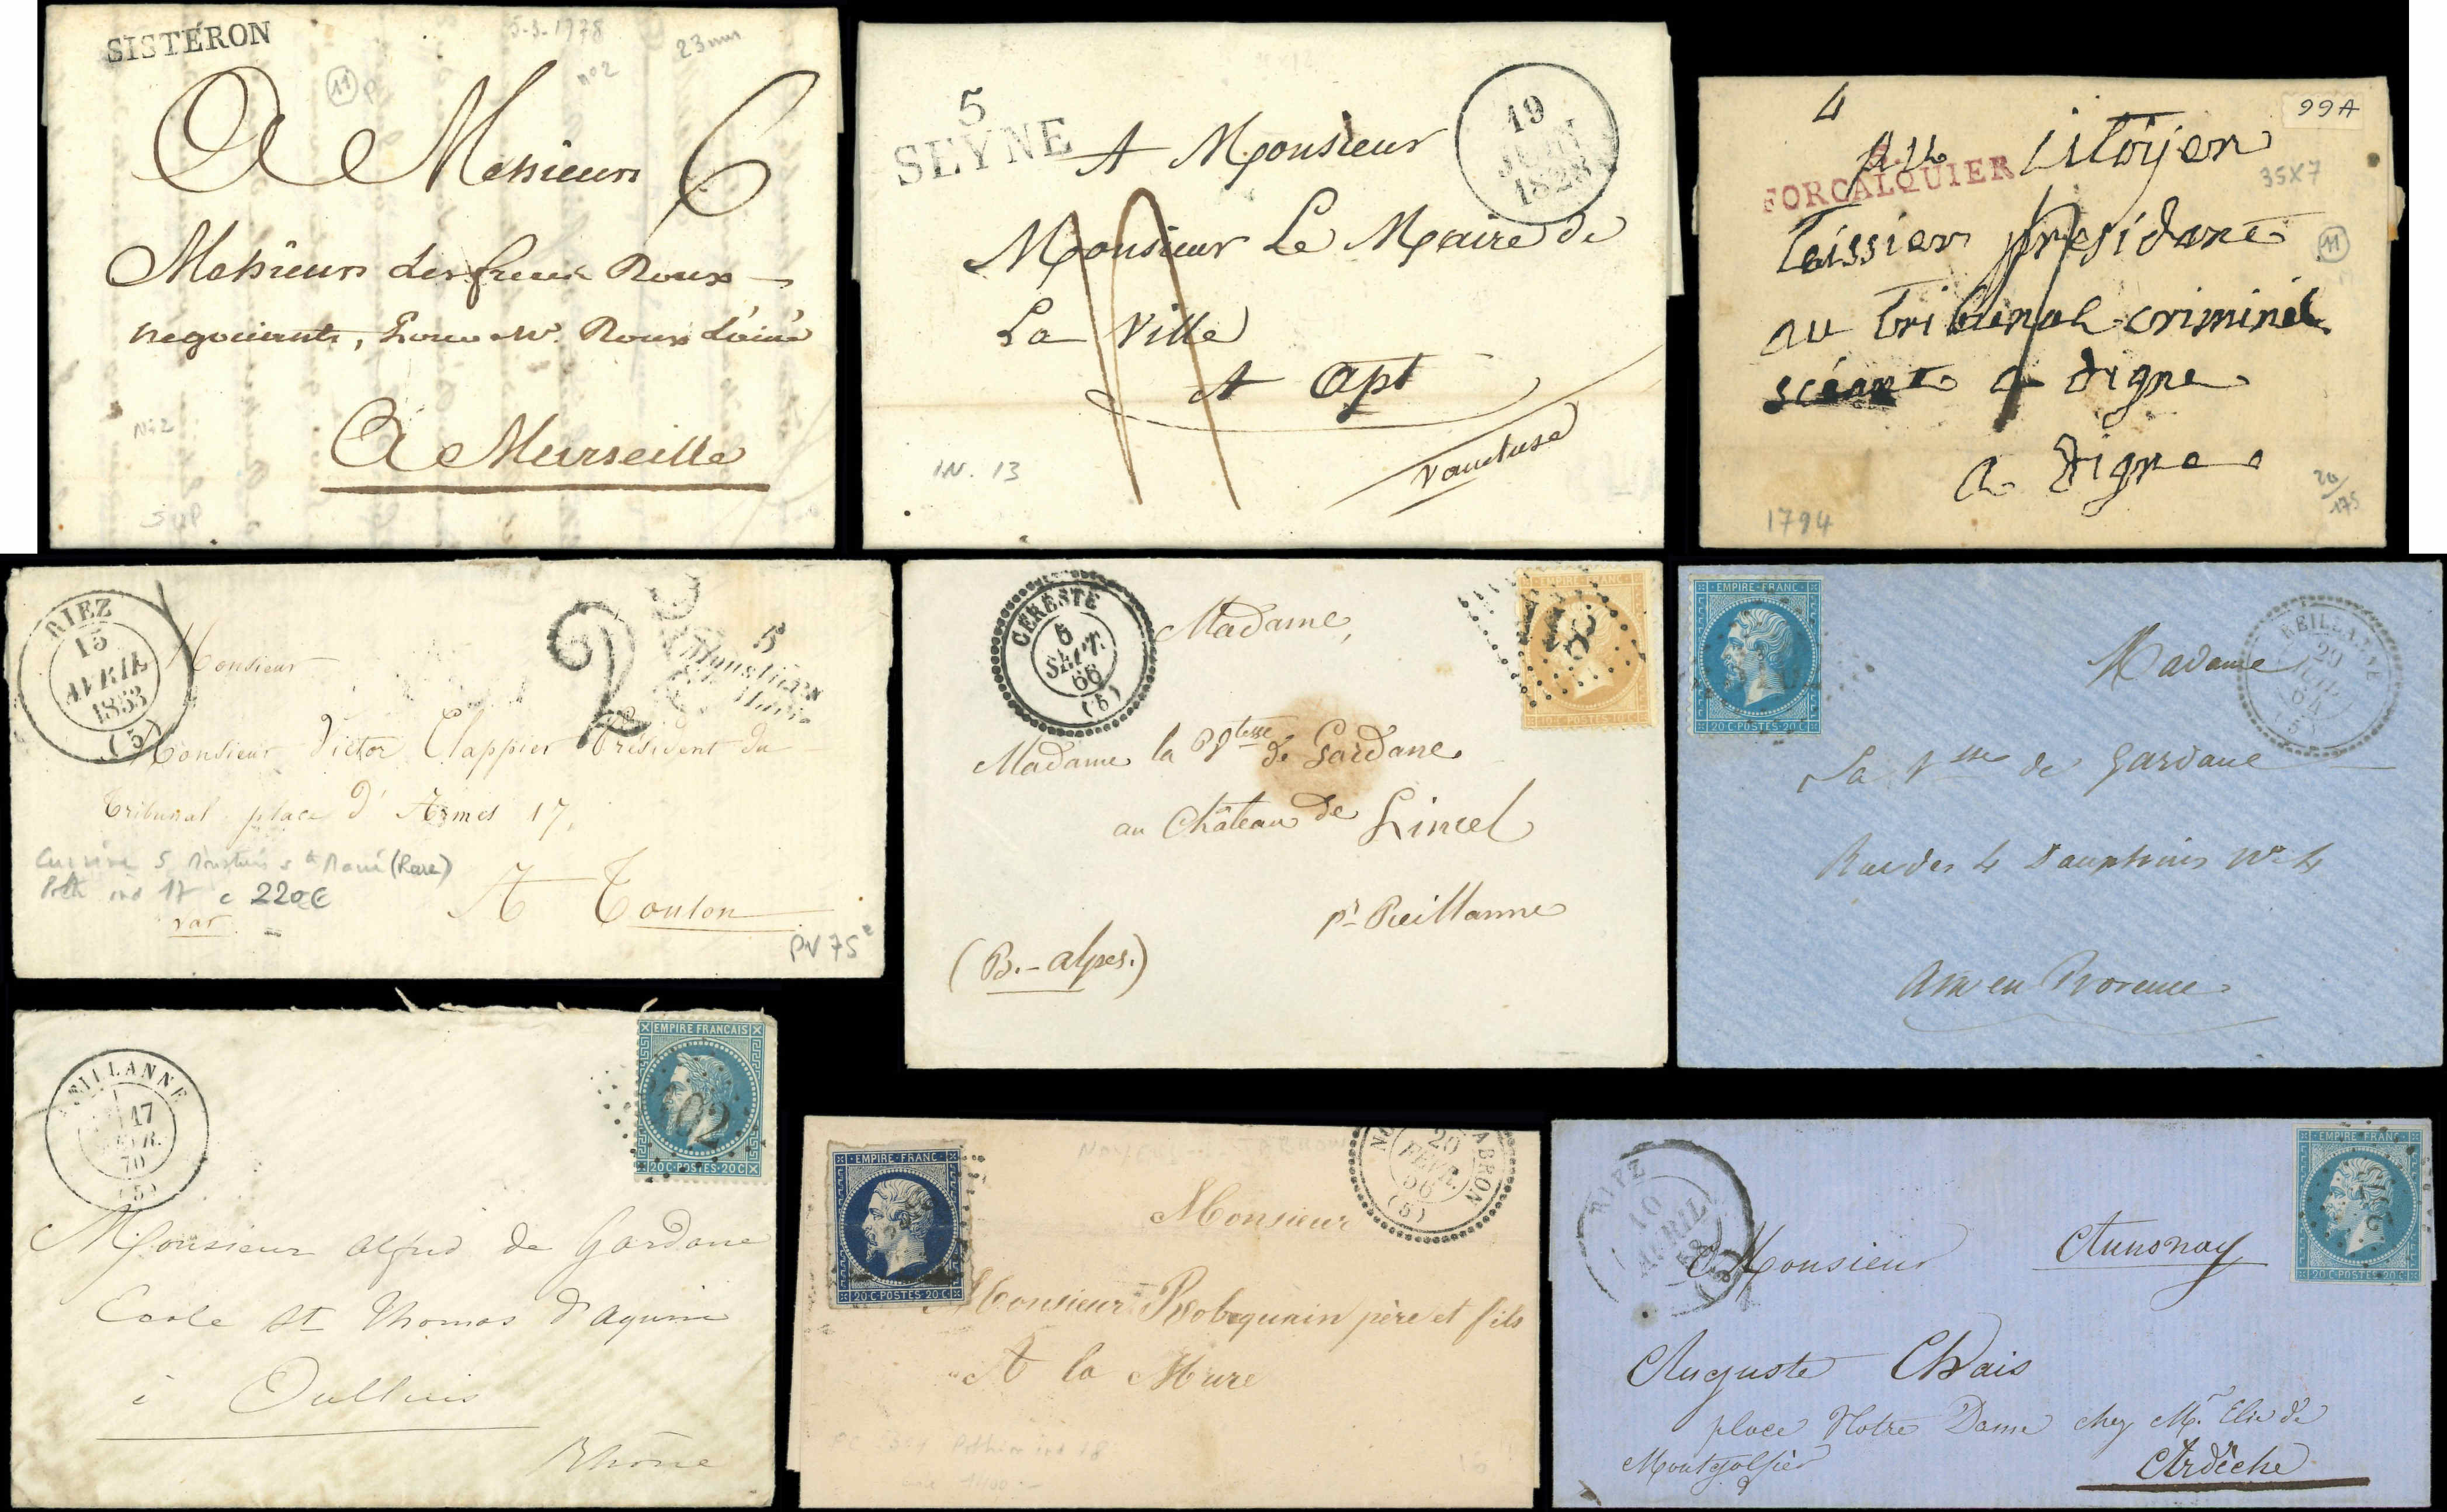 SISTÉRON
5-3-1778
23 mm
n°2
11
P
A Messieurs
6
Messieurs les freres Roux
negociants, Roux
A Marseille
N°2
SUP
5
SEYNE
19
JUIN
1828
A Monsieur
Monsieur Le Maire de
La Ville
A Apt
Vaucluse
IN. 13
4
99A
au Citoyen
FORCALQUIER
35X7
teissier president
11
au tribunal criminel
scéant a digne
a digne
1794
20/175
RIEZ
15
AVRIL
1853
(5)
2
5
Moustiers
Ste Marie
Monsieur
Monsieur Victor Clappier Président du
Tribunal place d'Armes 17,
Cursive 5 Moustiers Ste Marie (Rare)
Poth ind 17 c 220€
A Toulon
Var
PV 75€
CERESTE
6
SEPT.
66
(5)
EMPIRE FRANC
10 C POSTES 10 C
Madame,
Madame la Vtesse de Gardane
au Château de Lincel
pr Reillanne
(B.-alpes.)
EMPIRE FRANC
20 C POSTES 20 C
REILLANNE
29
64
(5)
Madame
La Vsse de Gardane
Rue des 4 Dauphins N° 4
Aix en Provence
REILLANNE
17
FEVR.
70
(5)
EMPIRE FRANÇAIS
20 C POSTES 20 C
Monsieur Alfred de Gardane
Ecole St Thomas d'Aquin
à Oullins
Rhône
EMPIRE FRANC
20 C POSTES 20 C
20
FÉVR.
56
(5)
ABRON
Monsieur
Monsieur Bobquain père et fils
A la Mure
RIEZ
10
AVRIL
58
EMPIRE FRANC
20 C POSTES 20 C
Monsieur
Annonay
Auguste Chais
place Notre Dame chez Mr. Elie de
Montgolfier
Ardèche